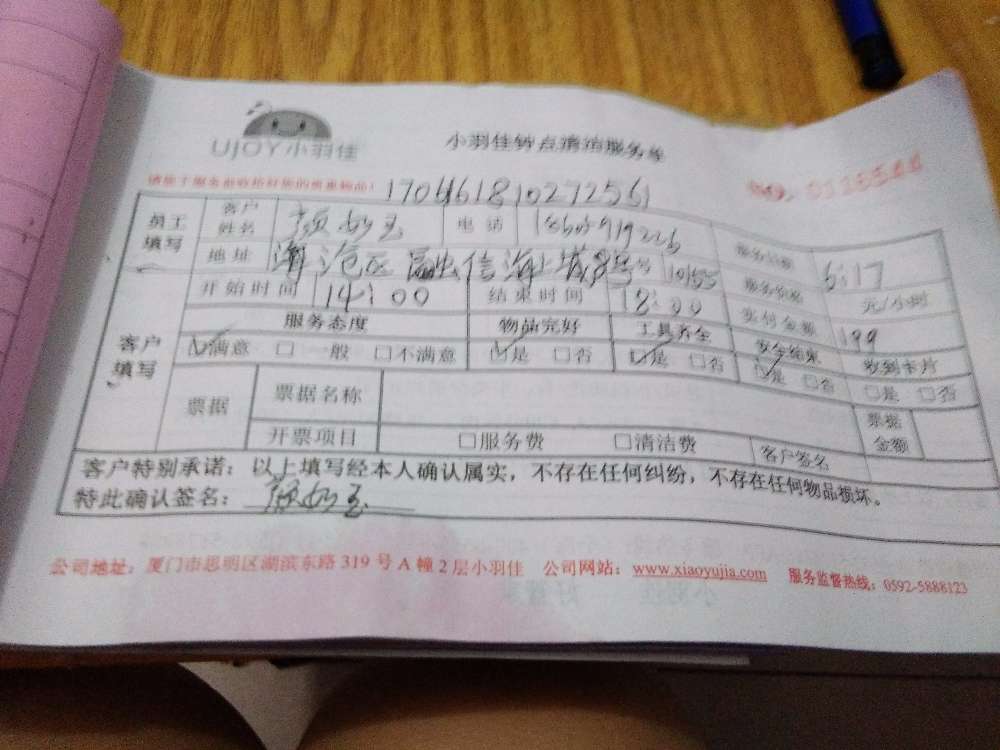 UJOY小羽佳
小羽佳钟点清洁服务单
请您于服务前收拾好您的贵重物品!
170461810272561
员工填写 客户姓名 颜如玉 电话 服务日期 5:17
地址 海沧区融信海上城8号 服务价格 元/小时
开始时间 14:00 结束时间 18:00 实付金额 199
客户填写 服务态度 物品完好 工具齐全 安全结束 收到卡片
☑满意 □一般 □不满意 ☑是 □否 ☑是 □否 ☑是 □否 □是 □否
票据 票据名称 票据金额
开票项目 □服务费 □清洁费 客户签名
客户特别承诺：以上填写经本人确认属实，不存在任何纠纷，不存在任何物品损坏。
特此确认签名：颜如玉
公司地址：厦门市思明区湖滨东路 319 号 A 幢 2 层小羽佳 公司网站：www.xiaoyujia.com 服务监督热线：0592-5888123